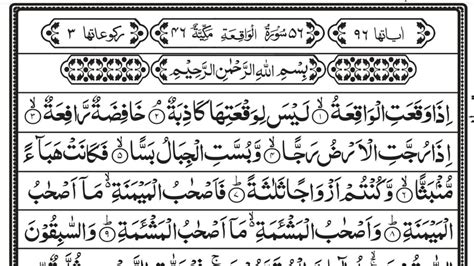 اٰیاتها ٩٦ ٥٦ سُوْرَةُ الْوَاقِعَةِ مَكِّیَّةٌ ٤٦ ركوعاتها ٣
بِسْمِ اللّٰهِ الرَّحْمٰنِ الرَّحِیْمِ
اِذَا وَقَعَتِ الْوَاقِعَةُ ۙ﴿۱﴾ لَیْسَ لِوَقْعَتِهَا كَاذِبَةٌ ۘ﴿۲﴾ خَافِضَةٌ رَّافِعَةٌ ۙ﴿۳﴾
اِذَا رُجَّتِ الْاَرْضُ رَجًّا ۙ﴿۴﴾ وَّبُسَّتِ الْجِبَالُ بَسًّا ۙ﴿۵﴾ فَكَانَتْ هَبَآءً
مُّنْۢبَثًّا ۙ﴿۶﴾ وَّكُنْتُمْ اَزْوَاجًا ثَلٰثَةً ؕ﴿۷﴾ فَاَصْحٰبُ الْمَیْمَنَةِ ۙ۬ مَاۤ اَصْحٰبُ
الْمَیْمَنَةِ ؕ﴿۸﴾ وَاَصْحٰبُ الْمَشْـَٔمَةِ ۙ۬ مَاۤ اَصْحٰبُ الْمَشْـَٔمَةِ ؕ﴿۹﴾ وَالسّٰبِقُوْنَ